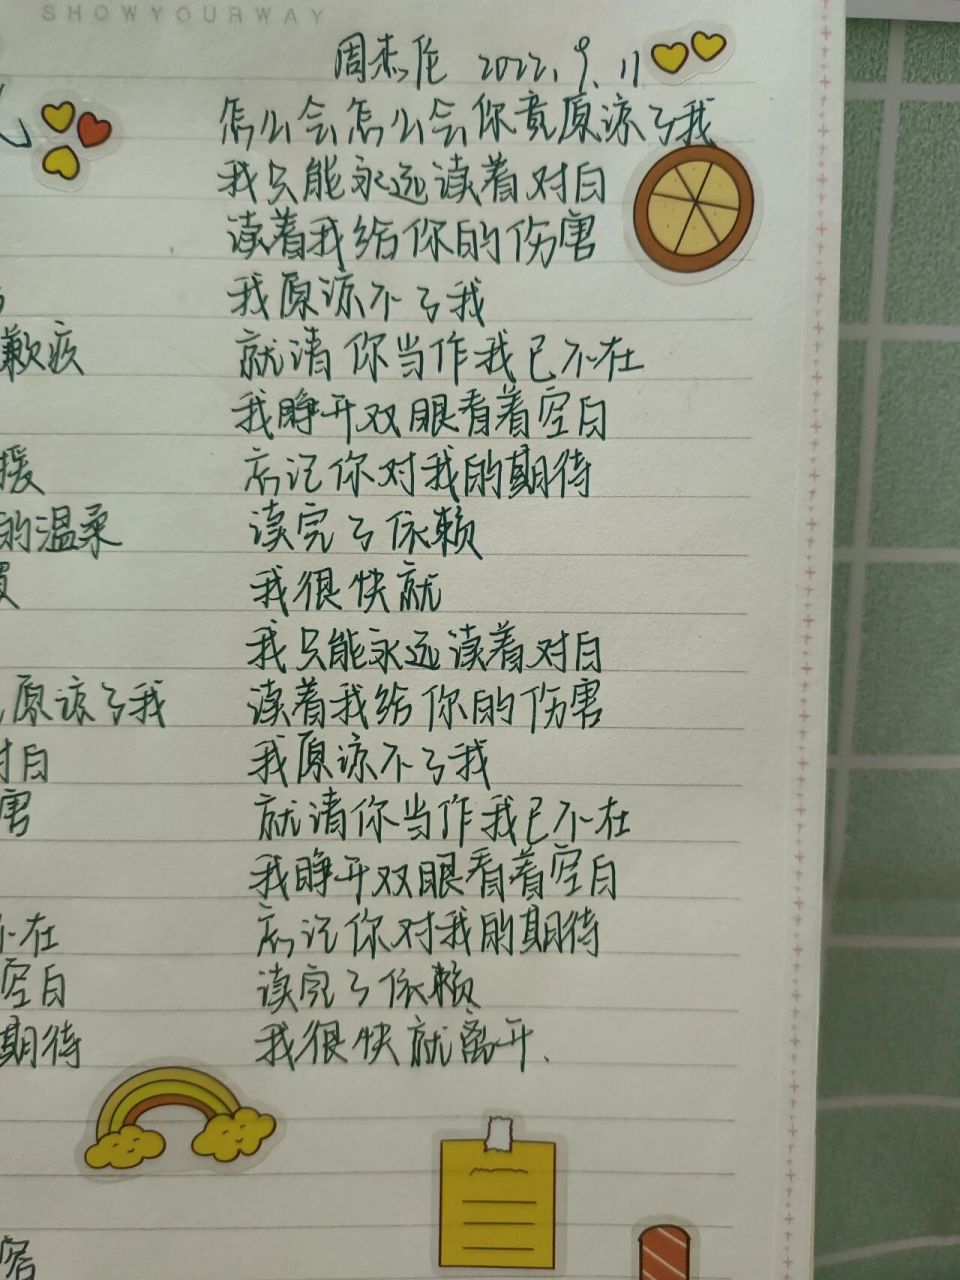 SHOWYOURWAY
周杰伦 2022.9.11
怎么会怎么会你竟原谅了我
我只能永远读着对白
读着我给你的伤害
我原谅不了我
歉疚
就请你当作我已不在
我睁开双眼看着空白
援
忘记你对我的期待
的温柔
读完了依赖
我很快就
我只能永远读着对白
原谅了我
读着我给你的伤害
对白
我原谅不了我
害
就请你当作我已不在
我睁开双眼看着空白
不在
忘记你对我的期待
空白
读完了依赖
期待
我很快就离开.